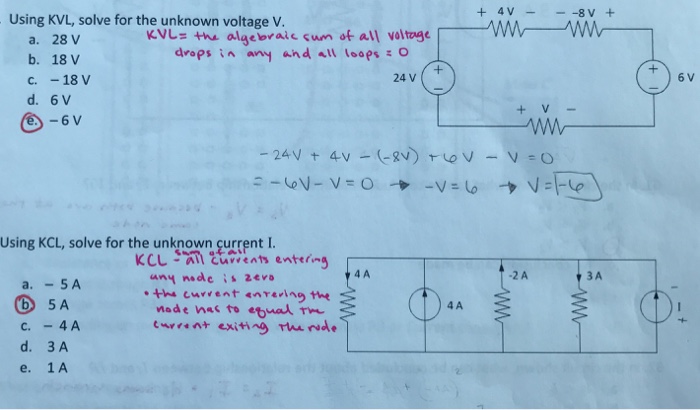 Using KVL, solve for the unknown voltage V.
KVL = the algebraic sum of all voltage
drops in any and all loops = 0
a. 28 V
b. 18 V
c. - 18 V
d. 6 V
e. - 6 V
+ 4 V - - -8 V +
24 V
+
-
+
-
6 V
+ V -
- 24V + 4V - (-8V) + 6V - V = 0
= -6V - V = 0 → -V = 6 → V = -6
Using KCL, solve for the unknown current I.
KCL - sum of all currents entering
any node is zero
• the current entering the
node has to equal the
current exiting the node
a. - 5 A
b. 5 A
c. - 4 A
d. 3 A
e. 1 A
4 A
4 A
-2 A
3 A
I